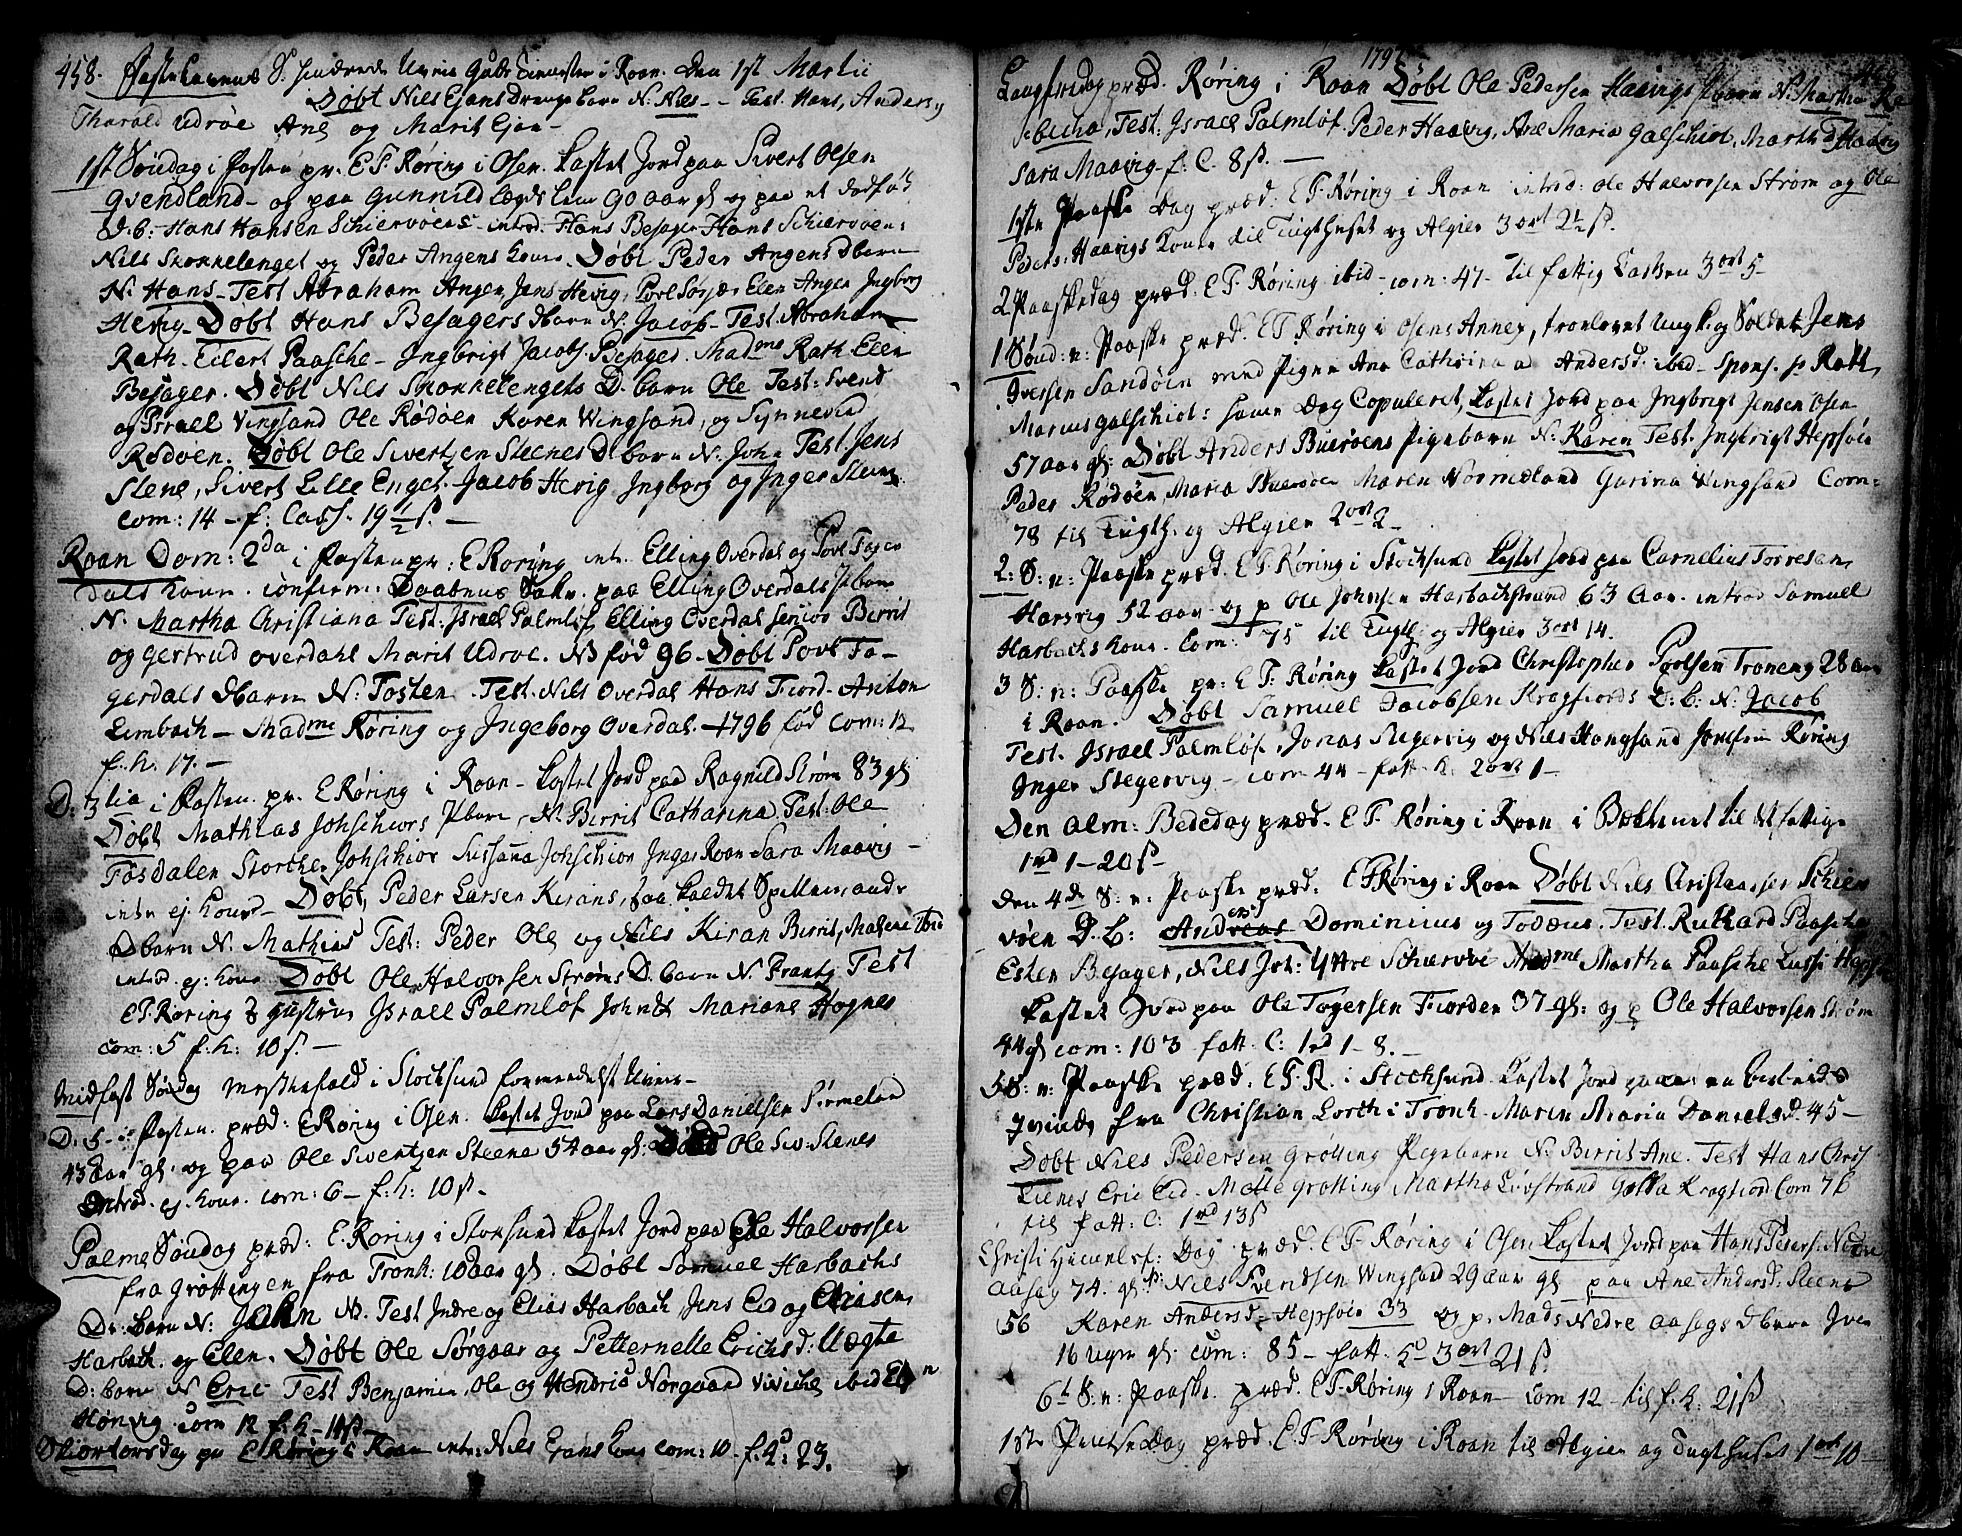 458. Fastelavens S. hindrede Uveir Guds Tienesten i Roan. Den 1st Martii
Døbt Nils Ejans Drengebarn N. Nils - Test. Hans, Anders,
Tharald Udröe Ane og Marit Ejan -
1st Søndag i Fasten pr. E T. Røring i Osen. Kastet Jord paa Sivert Olsen
Qvendland - og paa Gunnild Lægdslem 90 aar gl og paa et dødföt
D. b: Hans Hansen Schiervøens - introd. Hans Besager Hans Schiervøens
Nils Skokkelenget og Peder Angens Koner. Døbt Peder Angens Dbarn
N. Hans - Test Abraham Angen, Jens Hevig, Povl Sørjær Elen Angen Ingborg
Hevig - Døbt Hans Besagers Dbarn N. Jacob - Test. Abraham
Rath. Eilert Paasche - Ingbrigt Jacobs. Besager. Madme Rath Elen
Besager. Døbt Nils Skokkelengets D. barn Ole Test: Svend
og Israel Vingsand Ole Rødøen Karen Wingsand, og Synnevid
Rødøen. Døbt Ole Swertsen Steenes D. barn N. John Test. Jens
Stene, Sivert Lille Enget. Jacob Hevig Ingborg og Inger Stene
Com: 14 - f: Cass. 19 ½ s. -
Roan Dom: 2da i Fasten pr: E Røring intr. Elling Overdal og Povl Fager
dals Koner. Confirm: Daabens Sakr. paa Elling Overdals Pbarn
N. Martha Christiana Test: Israel Palmløf Elling Overdal senior Berrit
og Gertrud Overdahl Marit Udroe. NB fød 96 - Døbt Povl Fa-
gerdals Dbarn N. Tosten. Test. Nils Overdal Hans Fiord. Anton
Limbach - Madme Røring og Ingeborg Overdal. - 1796 fød Com: 12
f. k. 17. -
D: 3tia i Fasten. pr. E Røring i Roan - Kastet Jord paa Ragnild Strøm 83 gl
Døbt Mathias Johschiors Pbarn, N. Berrit Catharina Test: Ole
Fosdalen Storther Johschior Sussana Johschior Inger Roan Sara Maavig -
intr ej Kone - Døbt, Peder Larsen Kirans, saa kaldet Spillemand
Dbarn N. Mathias Test: Peder Ole og Nils Kiran Berrit, Malene Ibid
introd. ej: Kone Døbt Ole Halvorsen Strøms D. barn N. Frantz Test
E T. Røring Israel Palmløf John Mariane Hognes
Com: 5 f. k: 10 s. -
Midfast Søndag Messefald i Stocksund formedelst Uveir -
D. 5 - i Fasten. præd: E Røring i Osen. Kastet Jord paa Lars Danielsen Sørmeland
43 aar gl. og paa Ole Swentsen Steene 54 aar gl: Døbt Ole Sw. Stenes
Introd. ej Kone. com: 6 - f: k: 10 s.
Palme Søndag præd: E. Røring i Stoksund Kastet Jord paa Ole Halvorsen
fra Grøttingen fra Tronh: 10 aar gl. Døbt Samuel Harbachs
Dr: barn N: John N. Test Indre og Elias Harbach Jens Eid og Elias
Harbach. og Elen. Døbt Ole Sørgaar og Petternelle Erichsd: Uægte
D: barn N Eric Test Benjamin, Ole og Hendric Norgaard Vivicke ibid Elen
Hønvig Com 12 f. k - 14 s
Skiertorsdag pr E Røring i Roan intr: Nils Ejans Kone com: 10 - f. k: 23.
1797
Langfredag præd. Røring i Roan Døbt Ole Pedersen Haavigs Pbarn N. Martha Re
becha, Test: Israel Palmløf. Peder Haavig, Ane Maria Galschiot, Martha Haavig
Sara Maavig - f: C. 8 s. -
1ste Paaske Dag præd: E T. Røring i Roan introd: Ole Halvorsen Strøm og Ole
Peders: Haavigs Koner til Tugthuset og Algier 3 ort 2 ½ s.
2 Paaskedag præd. E T. Røring ibid - com: 47 - til fattig Cassen 3 ort 5 -
1 Sønd: n: Paaske præd. E T. Røring i Osens Annex, trolovet Ungk. og Soldat Jens
Iversen Sandøen med Pigen Ane Cathrina Andersd. ibid - Spons. p Rath,
Marius Galschiot: samme Dag Copuleret, Kastet Jord paa Ingbrigt Jensen Osen
57 aar gl: Døbt Anders Buerøens Pigebarn N: Karen Test. Ingbrigt Hepsøe
Peder Rødøen Maria Buerøen Maren Normeland Gurina Wingsand Com:
78 til Tugth. og Algier 2 ort 2 -
2: S: n: Paaske præd. E T. Røring i Stocksund Kastet Jord paa Cornelius Torresen,
Harsvig 52 aar - og p Ole Johnsen Harbachsund 63 aar. introd Samuel
Harbachs Kone. Com: 75 til Tugth. og Algier 3 ort 14.
3 S: n: Paaske pr: E T. Røring Kastet Jord Christopher Povlsen Troneng 28 aar
i Roan. Døbt Samuel Jacobsen Kragfiords D. b: N: Jacob
Test. Israel Palmløf, Jonas Stegervig og Nils Hongsand Jomfrue Røring
Inger Stegervig - com 44 - fatt. k. 2 ort 1 -
Den alm: Bededag præd. E T. Røring i Roan i Bækkenet til det fattige
1 rd 1 - 20 s -
Den 4de S: n: Paaske præd. E T. Røring i Roan Døbt Nils Cristiansen Schier
vøen D. b: Andreas Dominicus og Todæus. Test. Ruthard Paasche
Esten Besager, Nils Joh: Yttre Schiervøe Madme Martha Paasche Lussi Hepsøe
Kastet Jord paa Ole Togersen Fiorden 37 gl: og p Ole Halvorsen Strøm
44 gl com: 103 fatt. C: 1 rd 1 - 8. -
5 S: n: Paaske præd. E T. R. i Stocksund. Kastet Jord paa en besvine
Qvinde fra Christian Lorth i Tronh. Maren Maria Danielsd. 45 -
Døbt Nils Pedersen Grøtting Pigebarn N. Berrit Ane. Test Hans Chris
Lienes Eric Eid. Mette Grøtting Martha Løvstrand Golla Kragfiord Com 76
til fatt: C: 1 rd 13 s
Christi Himmelf: Dag præd. E T. Røring i Osen Kastet Jord paa Hans Peders. Nedre
Aasag 74. gl. Nils Svendsen Wingsand 29 aar gl paa Ane Andersd. Steene
56 Karen Andersd. Hepsøen 33 og p. Mads Nedre Aasags Dbarn Iver
16 Uger gl. com: 85 - fatt. 3 ort 21 s.
6t S. n: Paaske. præd. E T. Røring i Roan - com 12 - til f. k: 21 s
1ste Pintse Dag præd. E T. Røring i Roan til Algier og Tugthuset 1 ort 10 -